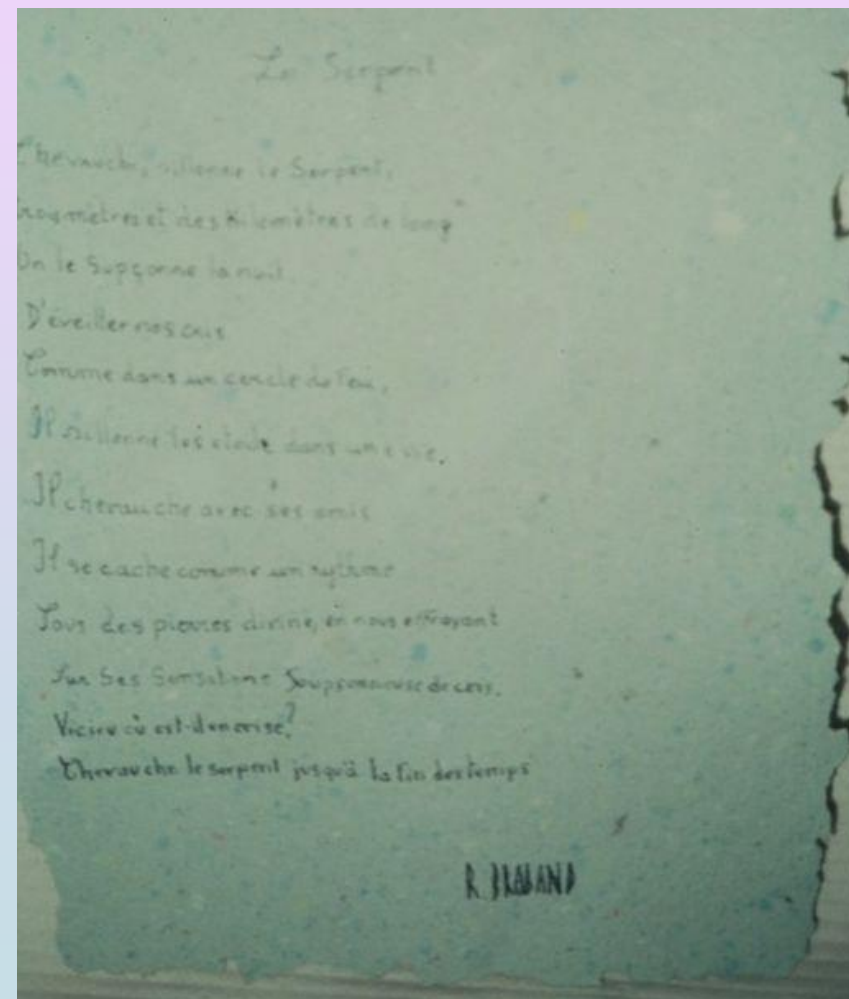 Le Serpent
Chevauche, sillonne le Serpent,
mètres et des Kilomètres de long
On le Supçonne la nuit
D'éveiller nos cris
Comme dans un cercle de feu,
Il sillonne les dans une vie.
Il chevauche avec ses amis
Il se cache comme un rythme
Sous des pierres divine, en nous effrayant
Sur Ses Sensations Soupçonneuse de
où est-
Chevauche le serpent jusqu'à la fin des temps
R. BRABAND